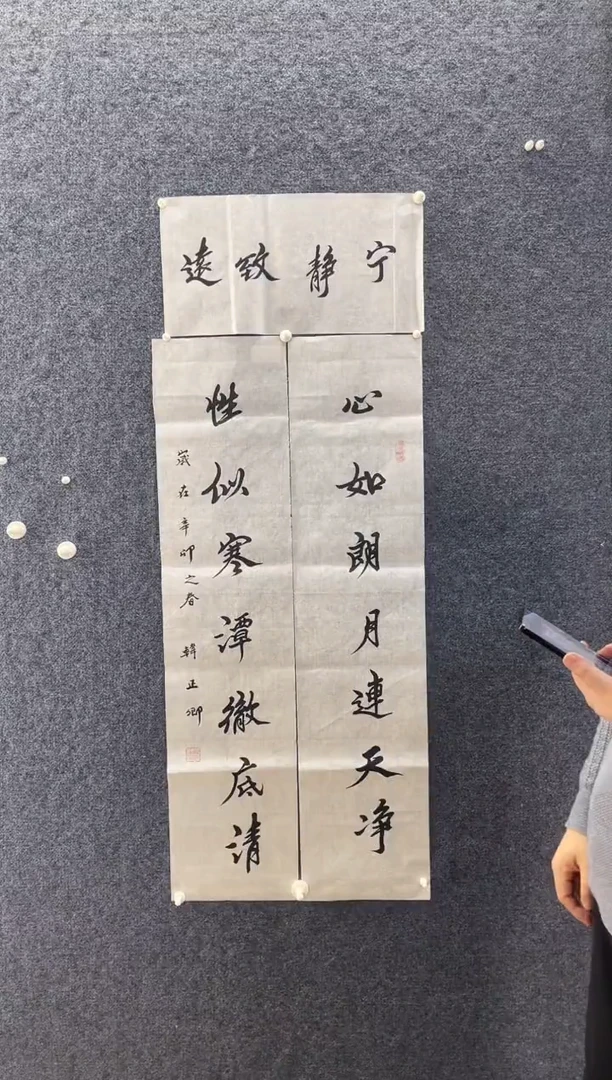 宁静致遠
心如朗月連天净
性似寒潭徹底清
歲在辛卯之春 韓正卿